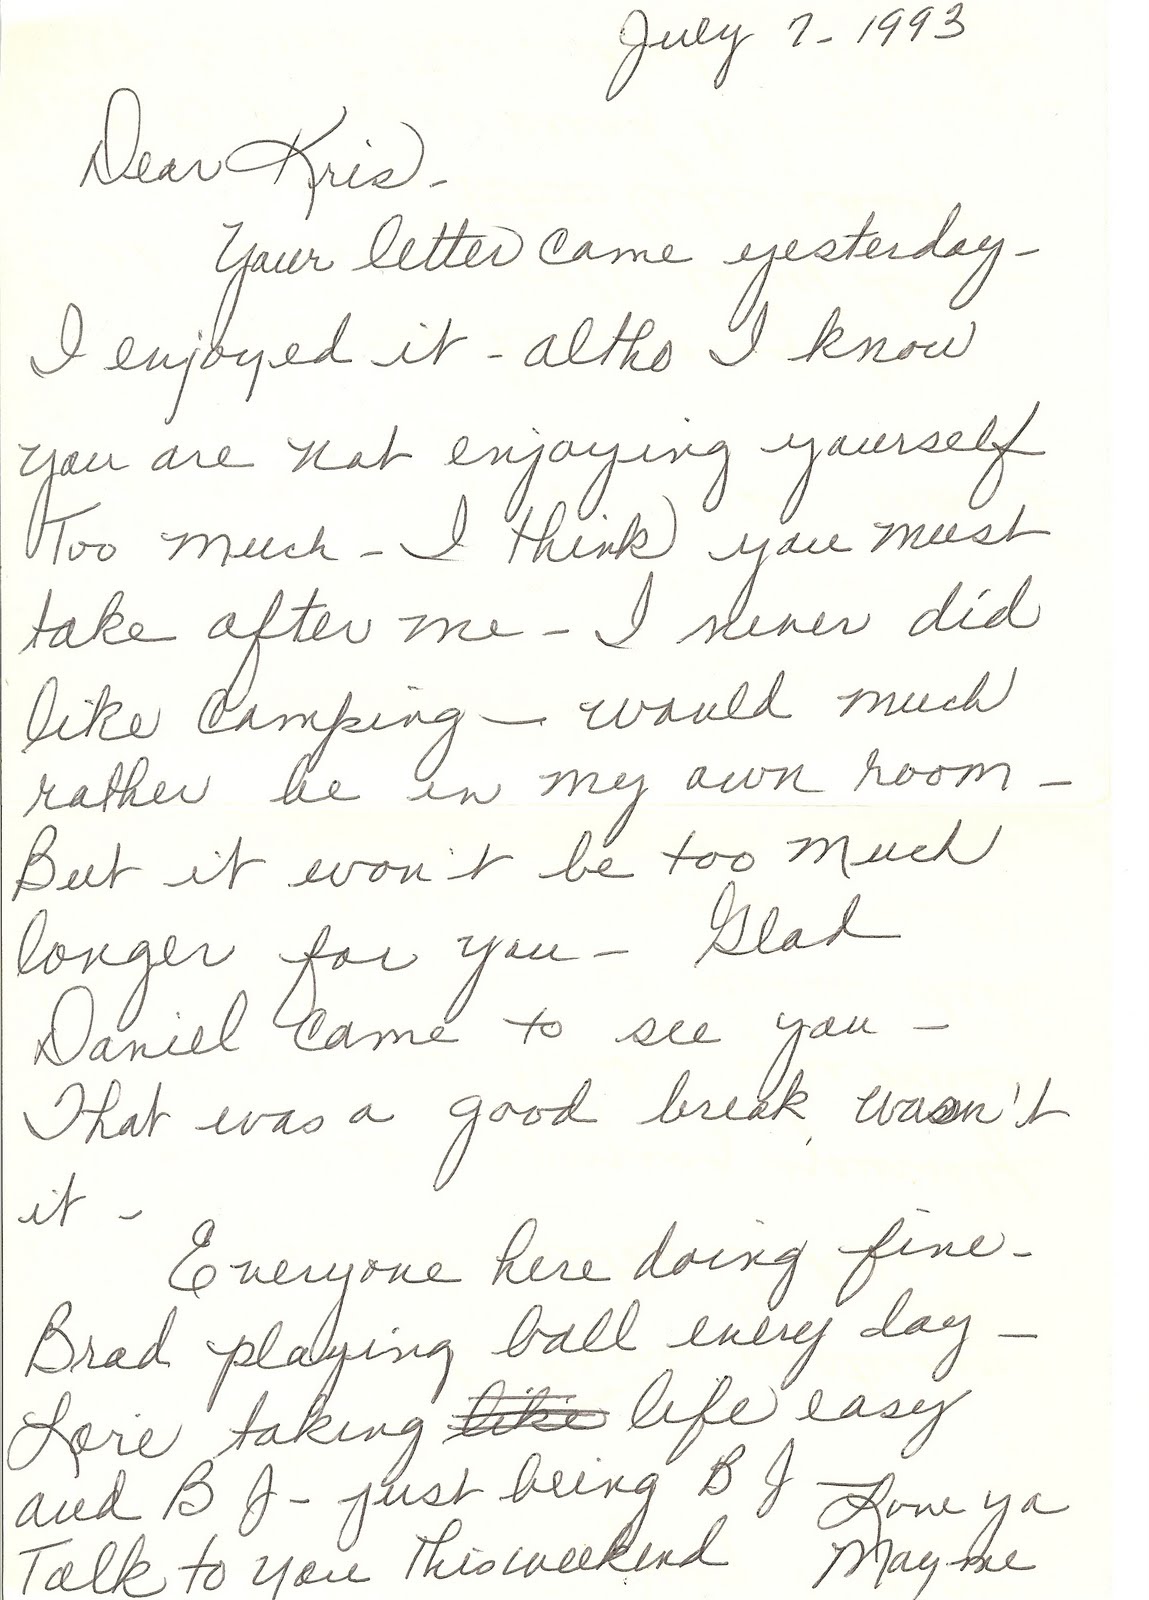 July 7- 1993
Dear Kris -
Your letter came yesterday -
I enjoyed it - altho I know
you are not enjoying yourself
Too much - I think you must
take after me - I never did
like camping - would much
rather be in my own room -
But it won't be too much
longer for you - Glad
Daniel came to see you -
That was a good break, wasn't
it -
Everyone here doing fine -
Brad playing ball every day -
Lorie taking like life easy
and B J - just being B J
Talk to you this weekend
Love ya
Mayme